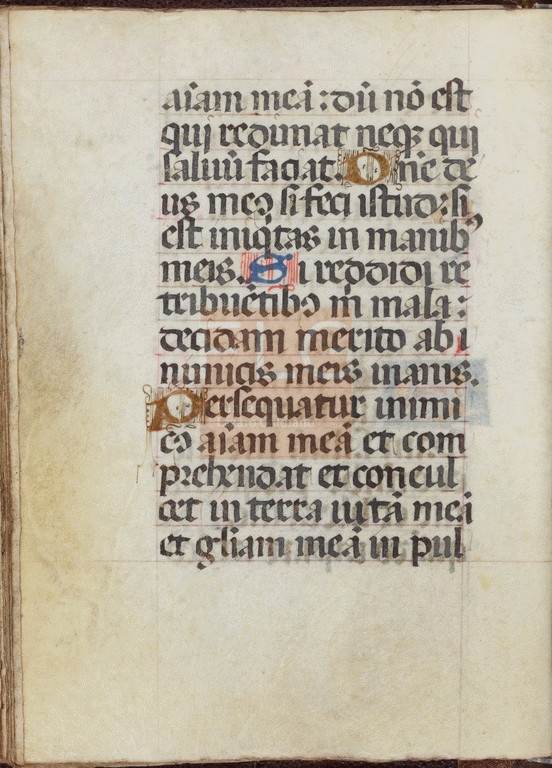 aīam meā : dū nō est
qui redimat neqz qui
saluū faciat. Dñe de
us meꝯ si feci istud : si
est iniq̄tas in manibꝰ
meis. Si reddidi re
tribuētibꝯ m mala :
decidam merito ab i
nimicis meis inanis.
Persequatur inimi
cꝯ aīam meā et com
prehendat et concul
cet in terra uitā meā
et gl̄iam meā in pul